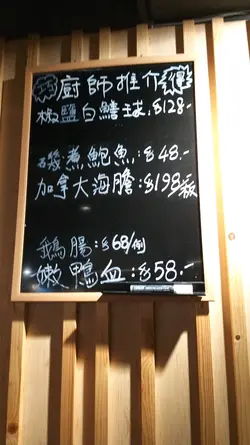 廚師推介
椒鹽白鱔球:$128.-
磯煮鮑魚:$48.-
加拿大海膽:$198/板
鵝腸:$68/例
嫩鴨血:$58.-